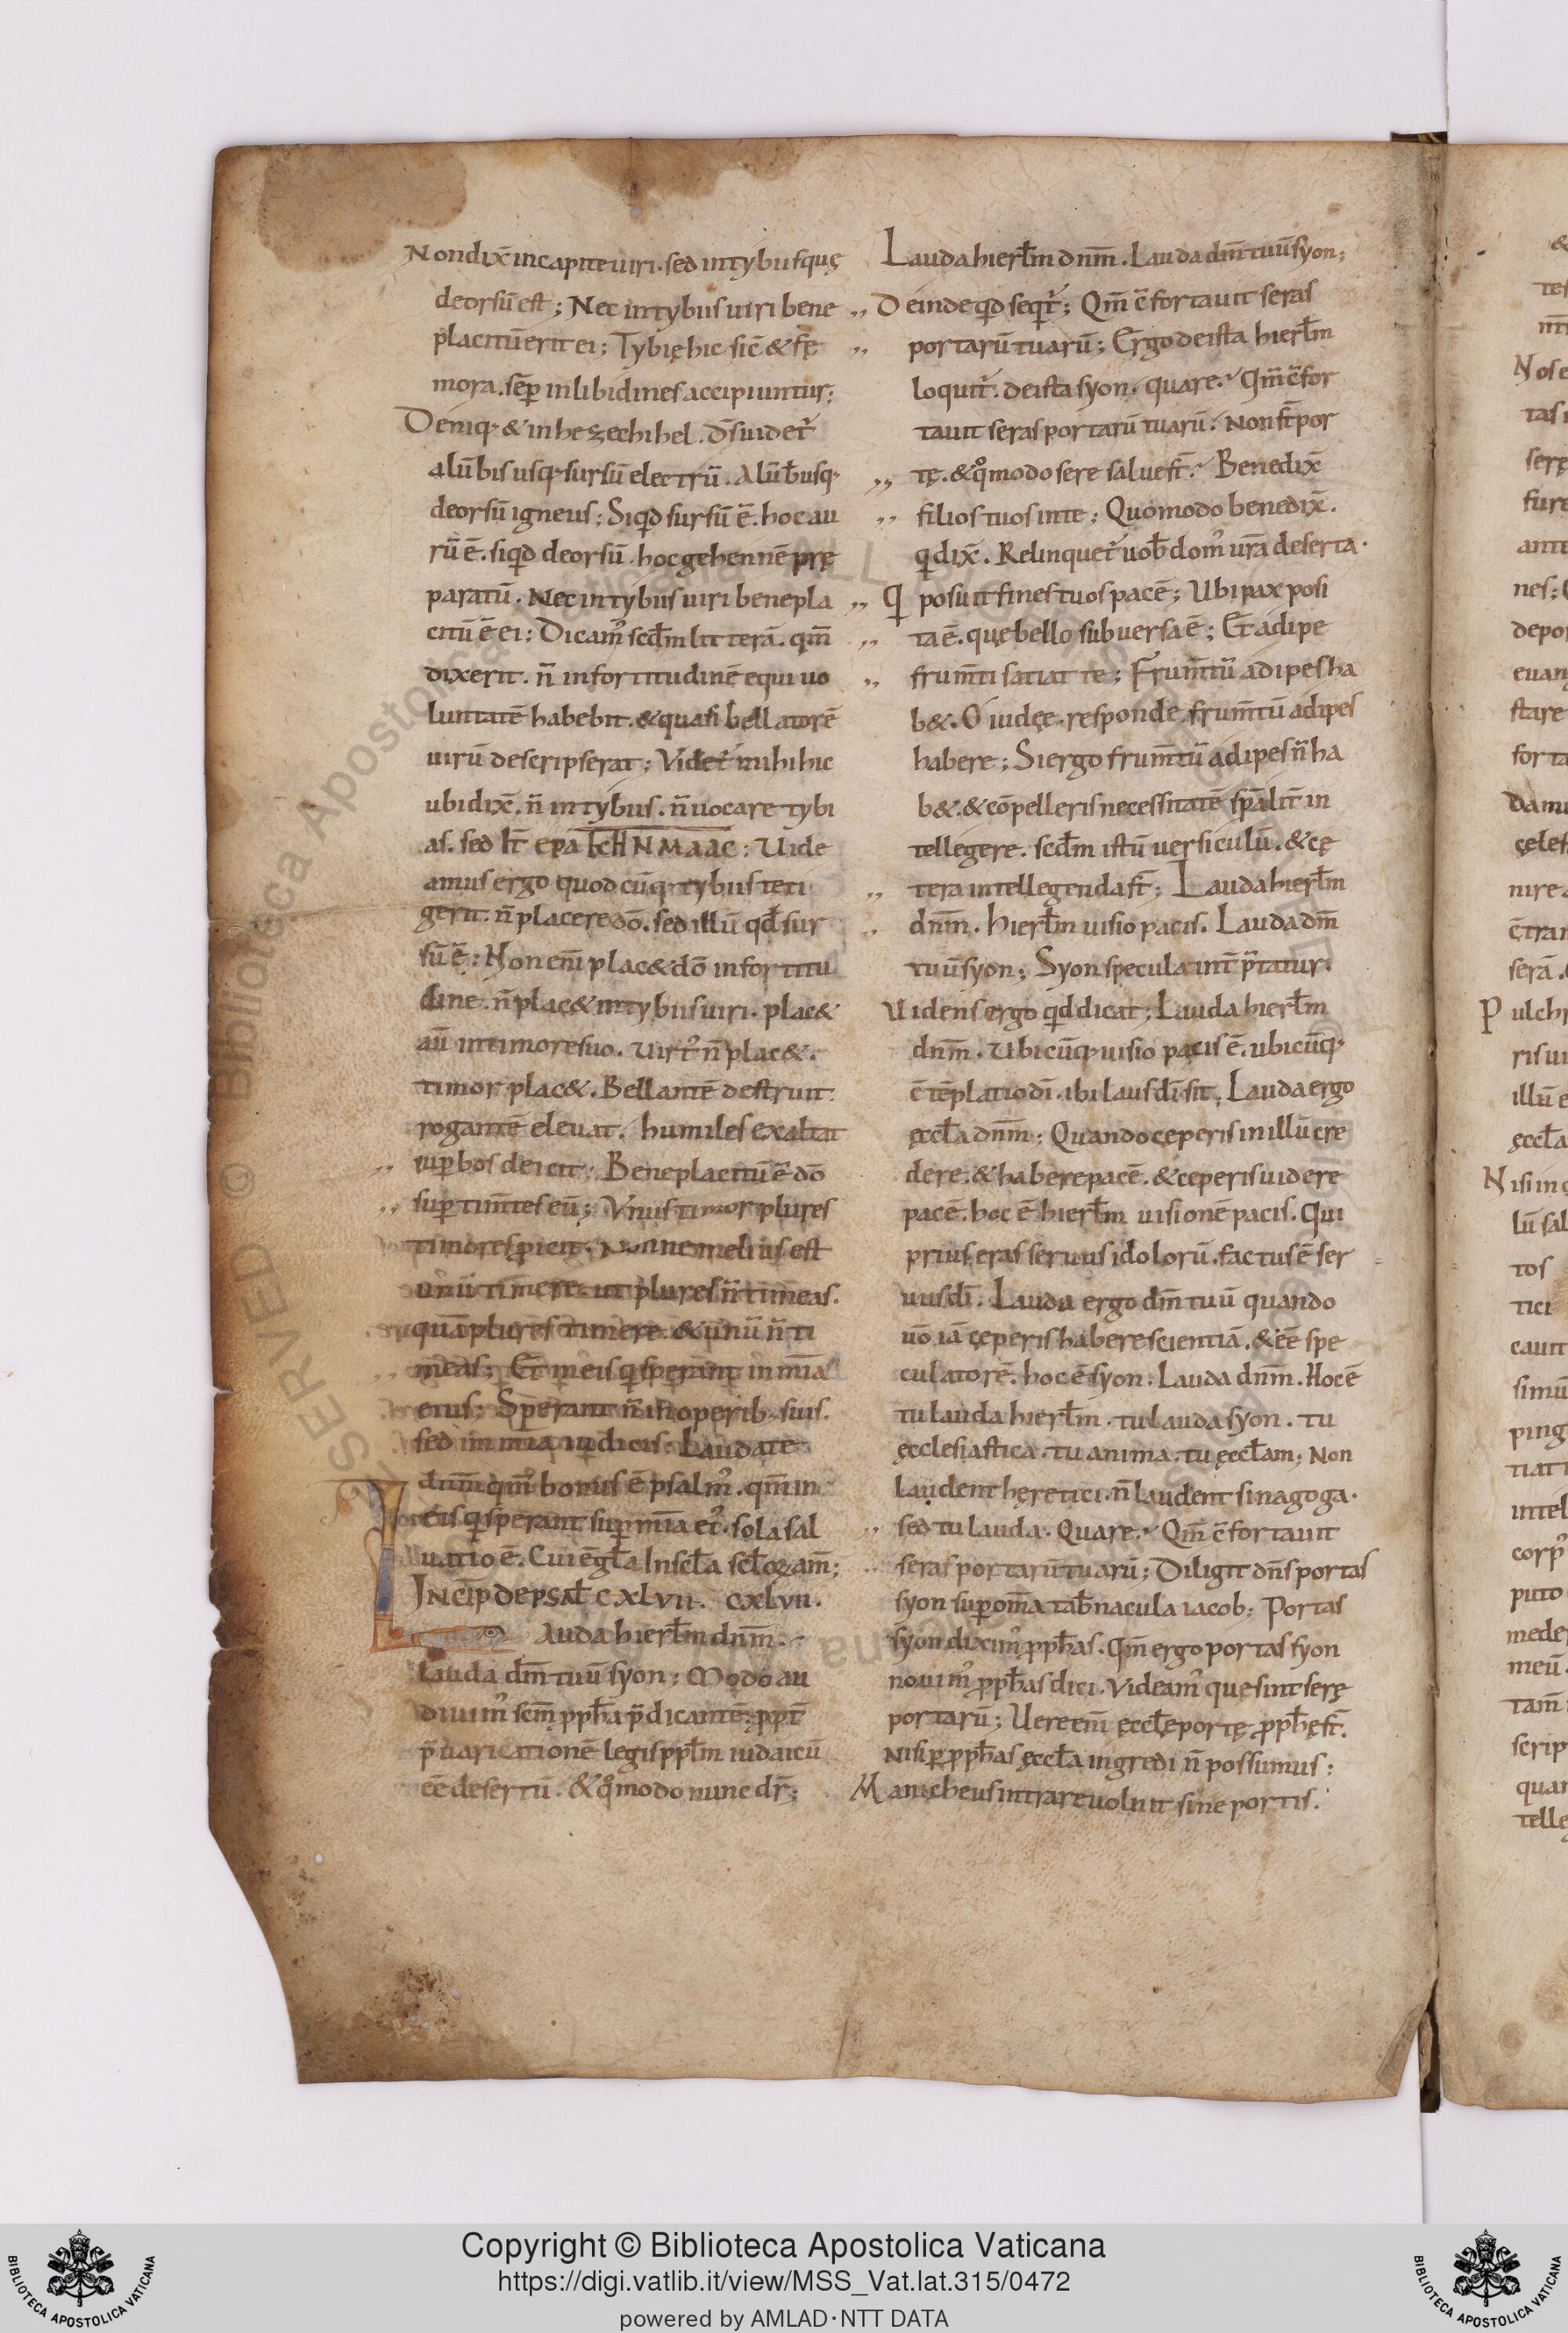 Non dix̄ in capite uiri. sed in tybuſ quę
deorsū eſt; Nec in tybus uiri bene
placitū erit ei; Tybię hic sic̄ & fę
mora. sēp in libidines accipiuntur;
Deniq; & in hezechihel. d̄s uidet᷑
a lūbis usq; sursū electrū. A lūb; usq;
deorsū igneus; Siqd sursū ē. hoc au
rū ē. siqd deorsū. hoc gehennē prę
paratū. Nec in tybus uiri benepla
citū ē ei; Dicam᷒ scd̄m litterā. qm̄
dixerit. n̄ in fortitudinē equi uo
luntatē habebit. & quasi bellatorē
uirū descripserat; Videt᷑ mihi hic
ubi dix̄. n̄ in tybus. n̄ uocare tybi
as. sed
amus ergo quodcūq; tybus teti
gerit. n̄ placere dō. sed illū qd̄ sur
sū ē; Non eni̅ plac& dō in fortitu
dine. n̄ plac& in tybus uiri. plac&
aū in timore suo. uirt᷒ n̄ plac&.
timor plac&. Bellantē destruit.
rogantē eleuat. humiles exaltat
sup̱bos deicit; Beneplacitū ē dō
sup̱ tim̄tes eū; Vnus timor plures
timores
unū timere. ut plures n̄ timeas.
quā plures timere. & unū n̄ ti
meas; Et in eis q sperant in mi̅a
eius; Sperant n̄ in operib; suis.
sed in mi̅a iudicis; Laudate
dnm̄ qm̄ bonus ē psalm᷒. qm̄ in
eis q sperant sup̱ mi̅a ei᷒. sola sal
uatio ē. Cui ē gl̄a In scl̄a scl̄oꝝ am̄;
INCIP̄ DE PSAL̄ CXLVII. CXLVII.
LAuda hierl̄m dnm̄.
Lauda dm̄ tuū syon; Modo au
diuim᷒ scm̄ pph̄a p̄dicantē. ppt̄
p̄uaricationē legis ppl̄m iudaicū
eē desertū. & qͦmodo nunc dr̄;
Lauda hierl̄m dnm̄. Lauda dm̄ tuū syon;
Deinde qd seqt᷑; Qm̄ c̄fortauit seras
portarū tuarū; Ergo de ista hierl̄m
loquit᷑. de ista syon. quare. Qm̄ c̄for
tauit seras portarū tuarū. Non st̄ por
tę. & qͦmodo sere salue st̄. Benedix̄
filios tuos in te; Quomodo benedix̄.
q dix̄. Relinquet᷑ uob̄ dom᷒ ur̄a deserta.
Q posuit fines tuos pacē; Ubi pax posi
ta ē. quę bello subuersa ē; Et adipe
frum̄ti satiat te; Frum̄tū adipes ha
b&. O iudęe. responde. frum̄tū adipes
habere; Si ergo frum̄tū adipes n̄ ha
b&. & cōpelleris necessitatē spāliť in
tellegere. scd̄m istū uersiculū. & cę
tera intellegenda st̄; Lauda hierl̄m
dnm̄. hierl̄m uisio pacis. Lauda dm̄
tuū syon; Syon specula int̄p̄tatur.
Uidens ergo qd dicat; Lauda hierl̄m
dnm̄. Ubicūq; uisio pacis ē. ubicūq;
c̄tēplatio dī. ibi laus dī sit. Lauda ergo
ęccl̄a dnm̄; Quando cęperis in illū cre
dere. & habere pacē. & ceperis uidere
pacē. hoc ē hierl̄m uisionē pacis. Qui
prius eras seruus idolorū. factus ē ser
uus dī. Lauda ergo dm̄ tuū quando
uō iā cęperis habere scientiā. & eē spe
culatorē. hoc ē syon. Lauda dnm̄. Hoc ē
tu lauda hierl̄m. tu lauda syon. tu
ęcclesiastica. tu anima. tu ęccl̄am; Non
laudent hęretici. n̄ laudent sinagoga.
sed tu lauda. Quare. Qm̄ c̄fortauit
seras portarū tuarū; Diligit dn̄s portas
syon sup̱ om̄a tab̄nacula iacob; Portas
syon dixim᷒ pph̄as. Qm̄ ergo portas syon
nouim᷒ pph̄as dici. Videam᷒ quę sint serę
portarū; Uere eni̅ ęccl̄ę portę pph̄ę st̄.
Nisi p̱ pph̄as ęccl̄a ingredi n̄ possumus;
Manicheus intrare uoluit sine portis.
&
tes
Nose
tas
serę
fure
ante
nes;
depo
euan
stare
forta
damu
cęles
nire
c̄tran
serā.
Pulchr
ris ui
illū e
ęccl̄a
Nisi in
lū sal
tos
tici
cauit
simū
ping
tiat
intel
corp᷒
puto
mede
meū
tam̄
scrip
quan
telle
© Biblioteca Apostolica Vaticana ALL RIGHTS RESERVED
Copyright © Biblioteca Apostolica Vaticana
https://digi.vatlib.it/view/MSS_Vat.lat.315/0472
powered by AMLAD·NTT DATA
BIBLIOTECA APOSTOLICA VATICANA
BIBLIOTECA APOSTOLICA VATICANA